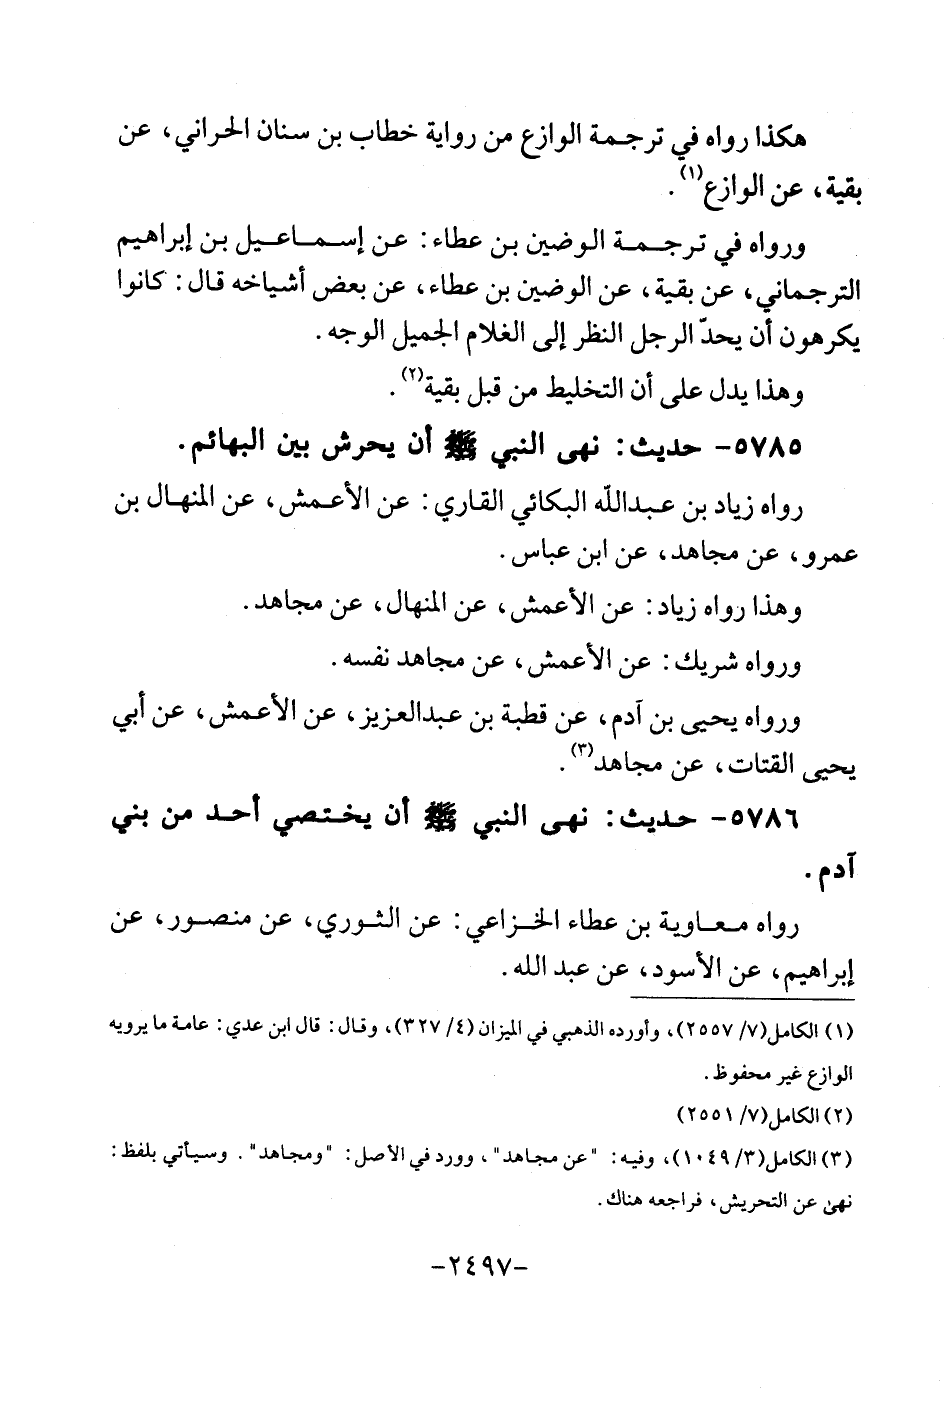 هكذا رواه في ترجمة الوازع من رواية خطاب بن سنان الحراني، عن
بقية، عن الوازع(١).
ورواه في ترجمة الوضين بن عطاء: عن إسماعيل بن إبراهيم
الترجماني، عن بقية، عن الوضين بن عطاء، عن بعض أشياخه قال: كانوا
يكرهون أن يحدّ الرجل النظر إلى الغلام الجميل الوجه.
وهذا يدل على أن التخليط من قبل بقية(٢).
٥٧٨٥- حديث: نهى النبي ﷺ أن يحرش بين البهائم.
رواه زياد بن عبدالله البكائي القاري: عن الأعمش، عن المنهال بن
عمرو، عن مجاهد، عن ابن عباس.
وهذا رواه زياد: عن الأعمش، عن المنهال، عن مجاهد.
ورواه شريك: عن الأعمش، عن مجاهد نفسه.
ورواه يحيى بن آدم، عن قطبة بن عبدالعزيز، عن الأعمش، عن أبي
يحيى القتات، عن مجاهد(٣).
٥٧٨٦- حديث: نهى النبي ﷺ أن يختصي أحد من بني
آدم.
رواه معاوية بن عطاء الخزاعي: عن الثوري، عن منصور، عن
إبراهيم، عن الأسود، عن عبد الله.
(١) الكامل(٧/ ٢٥٥٧)، وأورده الذهبي في الميزان (٤/ ٣٢٧)، وقال: قال ابن عدي: عامة ما يرويه
الوازع غير محفوظ.
(٢) الكامل(٧/ ٢٥٥١)
(٣) الكامل(٣/ ١٠٤٩)، وفيه: "عن مجاهد"، وورد في الأصل: "ومجاهد". وسيأتي بلفظ:
نهىٰ عن التحريش، فراجعه هناك.
-٢٤٩٧-